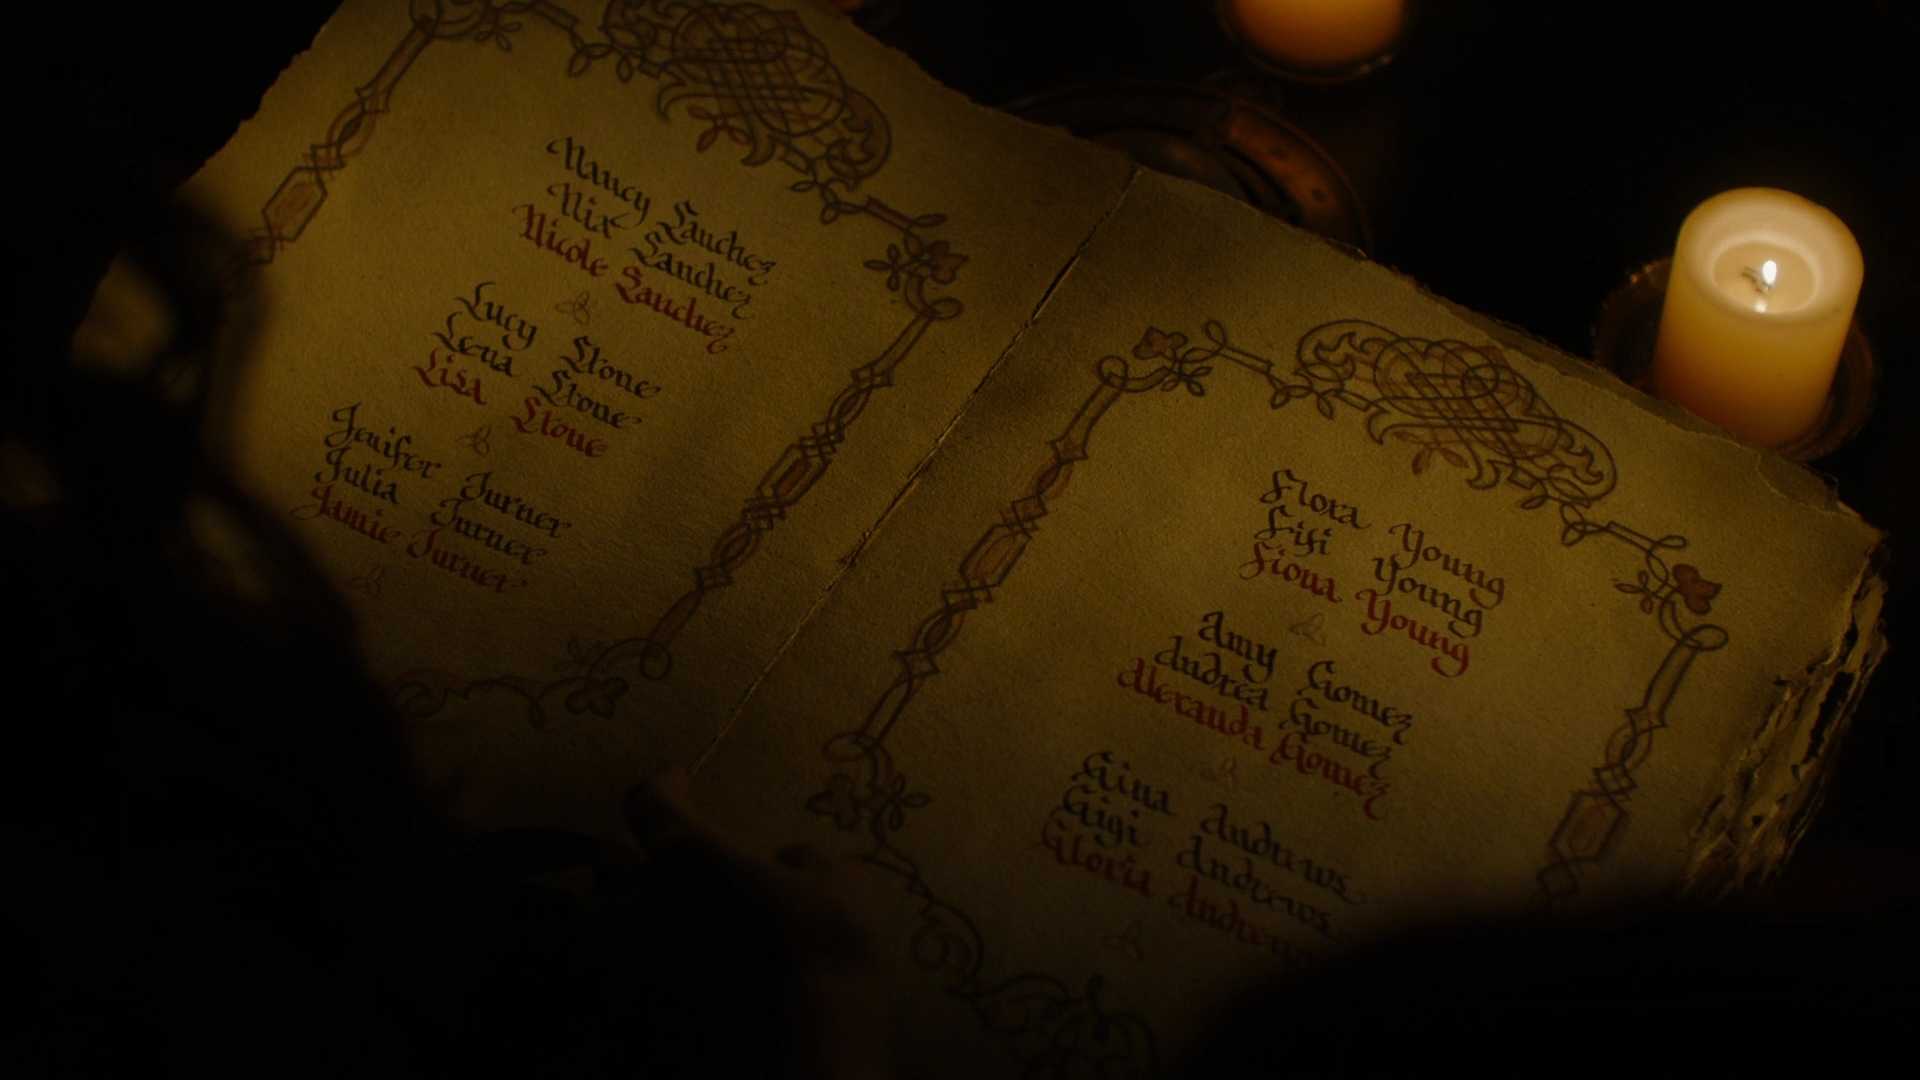 Nancy Sanchez
Nix Sanchez
Nicole Sanchez
Lucy Stone
Lena Stone
Lisa Stone
Jenifer Turner
Julia Turner
Jamie Turner
Flora Young
Fifi Young
Fiona Young
Amy Gomez
Andrea Gomez
Alexanda Gomez
Gina Andrews
Gigi Andrews
Gloria Andrews